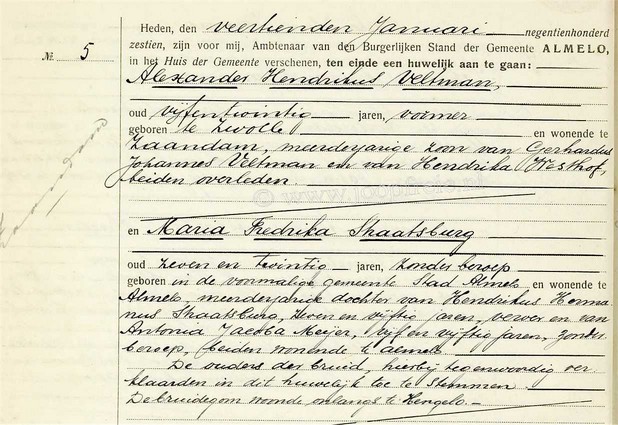 Heden, den veertienden Januari negentienhonderd
zestien, zijn voor mij, Ambtenaar van den Burgerlijken Stand der Gemeente ALMELO,
№ 5
in het Huis der Gemeente verschenen, ten einde een huwelijk aan te gaan:
Alexander Hendrikus Veltman,
oud vijfentwintig jaren, vormer
geboren te Zwolle en wonende te
Zaandam, meerderjarige zoon van Gerhardus
Johannes Veltman en van Hendrika Westhof,
beiden overleden
en Maria Fredrika Shaatsburg
oud zeven en twintig jaren, zonder beroep
geboren in de voormalige gemeente Stad Almelo en wonende te
Almelo, meerderjarige dochter van Hendrikus Herma
nus Shaatsburg, zeven en vijftig jaren, verver en van
Antonia Jacoba Meijer, vijf en vijftig jaren, zonder
beroep, beiden wonende te Almelo
De ouders der bruid, hierbij tegenwoordig ver
klaarden in dit huwelijk toe te stemmen.
De bruidegom woonde onlangs te Hengelo.